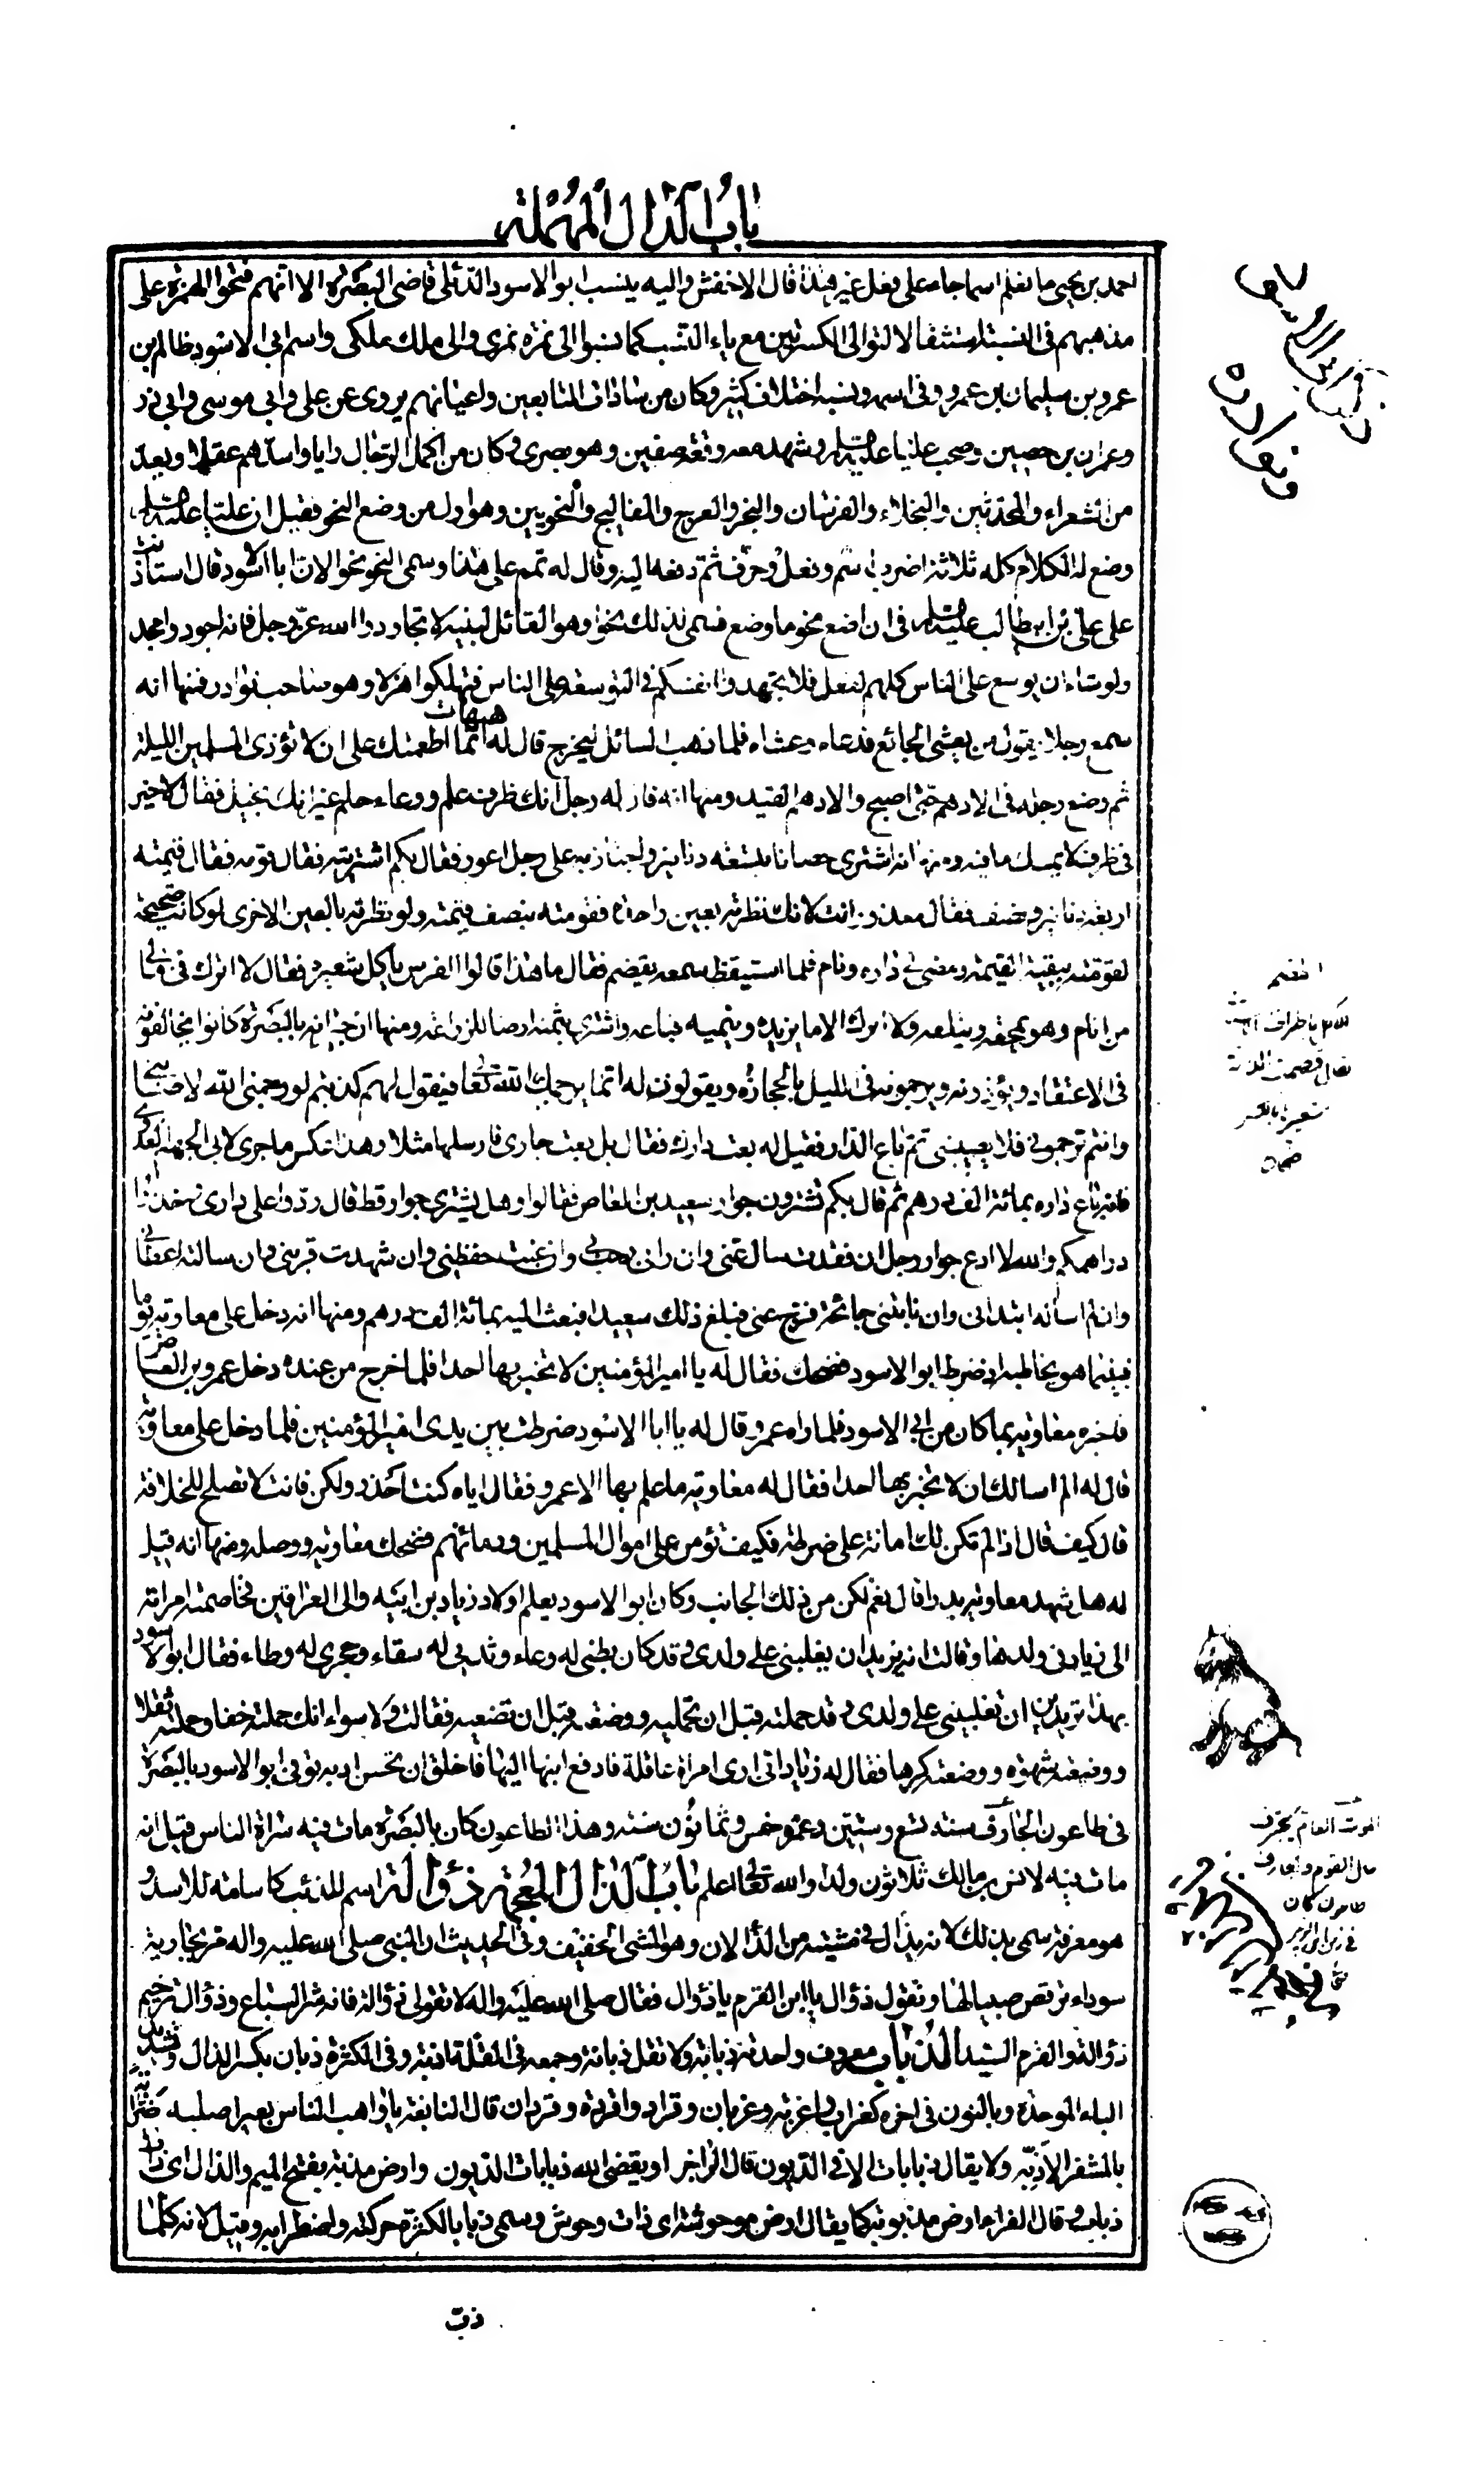 باب الدال المهملة
احمد بن يحيى ما نعلم اسما جاء على فعل غير هذا قال الاخفش واليه ينسب ابو الاسود الدئلى قاضى البصرة الا انهم فتحوا الهمزة على
مذهبهم فى النسبة استثقالا لتوالى الكسرتين مع ياء النسب كما نسبوا الى نمرة نمرى والى ملك ملكى واسم ابى الاسود ظالم بن
عمرو بن سليمان بن عمرو وفى اسمه ونسبه اختلاف كثير وكان من سادات التابعين واعيانهم يروى عن على وابى موسى وابى ذر
وعمران بن حصين وصحب عليا عليه السلم وشهد معه وقعة صفين وهو بصرى وكان من اكمل الرجال رايا واسدهم عقلا ويعد
من الشعراء والمحدثين والبخلاء والفرسان والبخر والعرج والمفاليج والنحويين وهو اول من وضع النحو فقيل ان عليا عليه السلم
وضع له الكلام كله ثلاثة اضرب اسم وفعل وحرف ثم دفعه اليه وقال له تمم على هذا وسمى النحو نحوا لان ابا الاسود قال استاذنت
على على بن ابيطالب عليه السلم فى ان اضع نحو ما وضع فسمى لذلك نحوا وهو القائل لبنيه لا تجاودوا الله عز وجل فانه اجود وامجد
ولو شاء ان يوسع على الناس كلهم لفعل فلا تجهدوا انفسكم فى التوسعة على الناس فتهلكوا هزلا وهو صاحب نوادر فمنها انه
سمع رجلا يقول من يعشى الجائع فدعاه وعشاه فلما ذهب السائل ليخرج قال له هيهات انما اطعمتك على ان لا تؤذى المسلمين الليلة
ثم وضع رجله فى الادهم حتى اصبح والادهم القيد ومنها انه قال له رجل انك ظرف علم ووعاء حلم غير انك بخيل فقال لا خير
فى ظرف لا يمسك ما فيه ومنها انه اشترى حصانا بتسعة دنانير واجتاز به على رجل اعور فقال بكم اشتريته فقال قومه فقال قيمته
اربعة دنانير ونصف فقال معذور انت لانك نظرته بعين واحدة فقومته بنصف قيمته ولو نظرته بالعين الاخرى لو كانت صحيحة
لقومته ببقية القيمة ومضى الى داره ونام فلما استيقظ سمعه يقضم فقال ما هذا قالوا الفرس ياكل شعيره فقال لا اترك فى مالى
من انام وهو يمحقه ويتلفه ولا اترك الا ما يزيده وينميه فباعه واشترى بثمنه ارضا للزراعة ومنها ان جيرانه بالبصرة كانوا يخالفونه
فى الاعتقاد ويؤذونه ويرجمونه فى الليل بالحجارة ويقولون له انما يرجمك الله تعالى فيقول لهم كذبتم لو رجمنى الله لاصابنى
وانتم ترجمونى فلا يصيبنى ثم باع الدار فقيل له بعت دارك فقال بل بعت جارى فارسلها مثلا وهذا عكس ما جرى لابى الجهم العدوى
فانه باع داره بمائة الف درهم ثم قال بكم تشترون جوار سعيد بن العاص فقالوا وهل يشترى جوار قط قال ردوا على دارى وخذوا
دراهمكم والله لا ادع جوار رجل ان فقدت سال عنى وان رانى رحب بى وان غبت حفظنى وان شهدت قربنى وان سالته اعطانى
وان لم اساله ابتدانى وان نابتنى جائحة فرج عنى فبلغ ذلك سعيدا فبعث اليه بمائة الف درهم ومنها انه دخل على معاوية يوما
فبينما هو يخاطبه اذ ضرط ابو الاسود فضحك فقال له يا امير المؤمنين لا تخبر بها احدا فلما خرج من عنده دخل عمرو بن العاص
فاخبره معاوية بما كان من ابى الاسود فلما راه عمرو قال له يا ابا الاسود ضرطت بين يدى امير المؤمنين فلما دخل على معاوية
قال له الم اسالك ان لا تخبر بها احدا فقال له معاوية ما علم بها الا عمرو فقال اياه كنت احذر ولكن فانت لا تصلح للخلافة
قال كيف قال اذا لم تكن لك امانة على ضرطة فكيف تؤمن على اموال المسلمين ودمائهم فضحك معاوية ووصله ومنها انه قيل
له هل شهد معاوية بدرا قال نعم لكن من ذلك الجانب وكان ابو الاسود يعلم اولاد زياد بن ابيه والى العراقين فخاصمته امراته
الى زياد فى ولدها وقالت انه يريد ان يغلبنى على ولدى وقد كان بطنى له وعاء وثديى له سقاء وحجرى له وطاء فقال ابو الاسود
بهذا تريدين ان تغلبينى على ولدى وقد حملته قبل ان تحمليه ووضعته قبل ان تضعيه فقالت ولا سواء انك حملته خفا وحملته ثقلا
ووضعته شهوة ووضعته كرها فقال له زياد انى ارى امراة عاقلة فادفع ابنها اليها فاخلق ان تحسن ادبه توفى ابو الاسود بالبصرة
فى طاعون الجارف سنة تسع وستين وعمره خمس وثمانون سنة وهذا الطاعون كان بالبصرة مات فيه سراة الناس قيل انه
مات فيه لانس بن مالك ثلاثون ولدا والله تعالى اعلم باب الذال المعجمة ذؤالة اسم للذئب كاسامة للاسد و
هو معرفة سمى بذلك لانه يذأل فى مشيته من الذألان وهو المشى الخفيف وفى الحديث ان النبى صلى الله عليه واله مر بجارية
سوداء ترقص صبيا لها وتقول ذؤال يا ابن القرم يا ذؤال فقال صلى الله عليه واله لا تقولى ذؤالة فانه شر السباع وذؤال ترخيم
ذؤالة والقرم السيد الذباب معروف واحدته ذبابة ولا تقل ذبانة وجمعه فى القلة اذبة وفى الكثرة ذبان بكسر الذال وتشديد
الباء الموحدة وبالنون فى اخره كغراب واغربة وغربان وقراد واقردة وقردان قال النابغة يا واهب الناس بعيرا صلبه ضرابة
بالمشفر الاذبه ولا يقال ذبابات الا فى الديون قال الراجز او يقضى الله ذبابات الديون وارض مذبة بفتح الميم والذال اى ذات
ذباب وقال الفراء ارض مذبوبة كما يقال ارض موحوشة اى ذات وحوش وسمى ذبابا لكثرة حركته واضطرابه وقيل لانه كلما
ذب
ونوادره
الموت العام يجترف
مال القوم والجارف
طاعون كان
فى زمن ابن الزبير